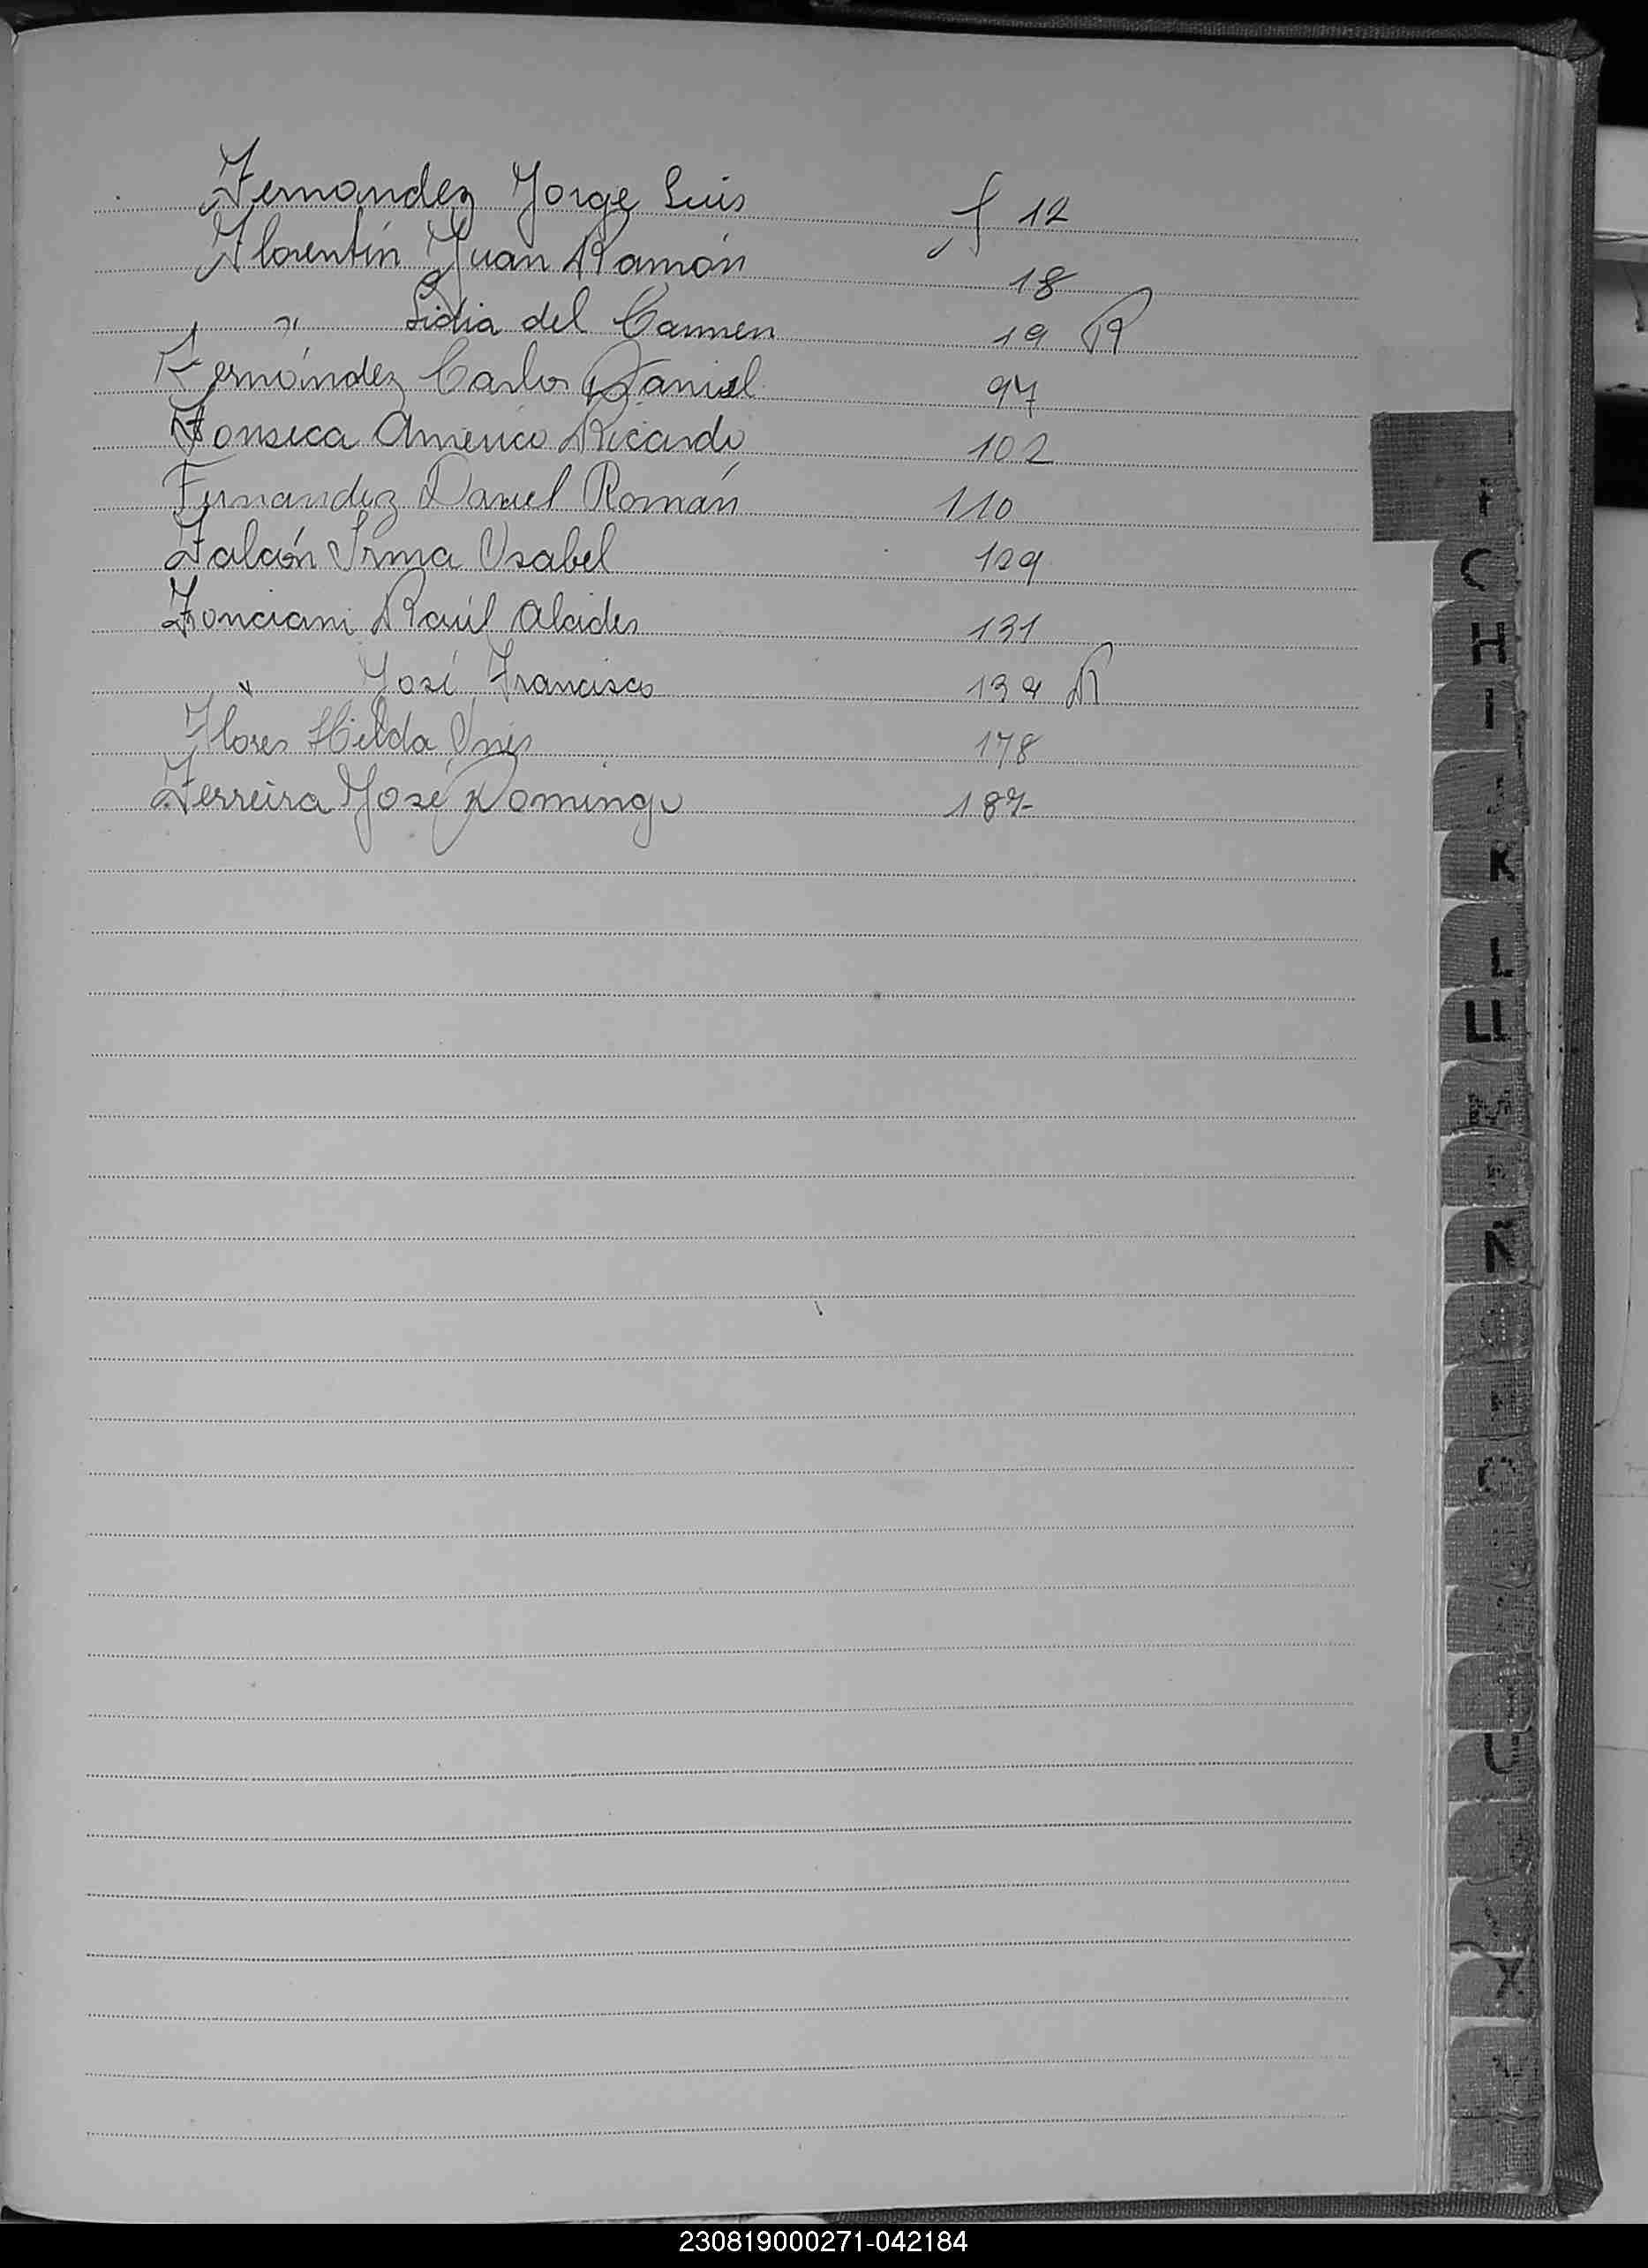 Fernandez Jorge Luis f 12
Florentín Juan Ramón 18
" Lidia del Carmen 19 R
Fernández Carlos Daniel 97
Fonseca Americo Ricardo 102
Fernandez Daniel Román 110
Falcón Irma Isabel 129
Fonciani Raúl Alcides 131
" José Francisco R
Flores Hilda Inés 178
Ferreira José Domingo 187
F
G
H
I
K
L
LL
Ñ
X
230819000271-042184